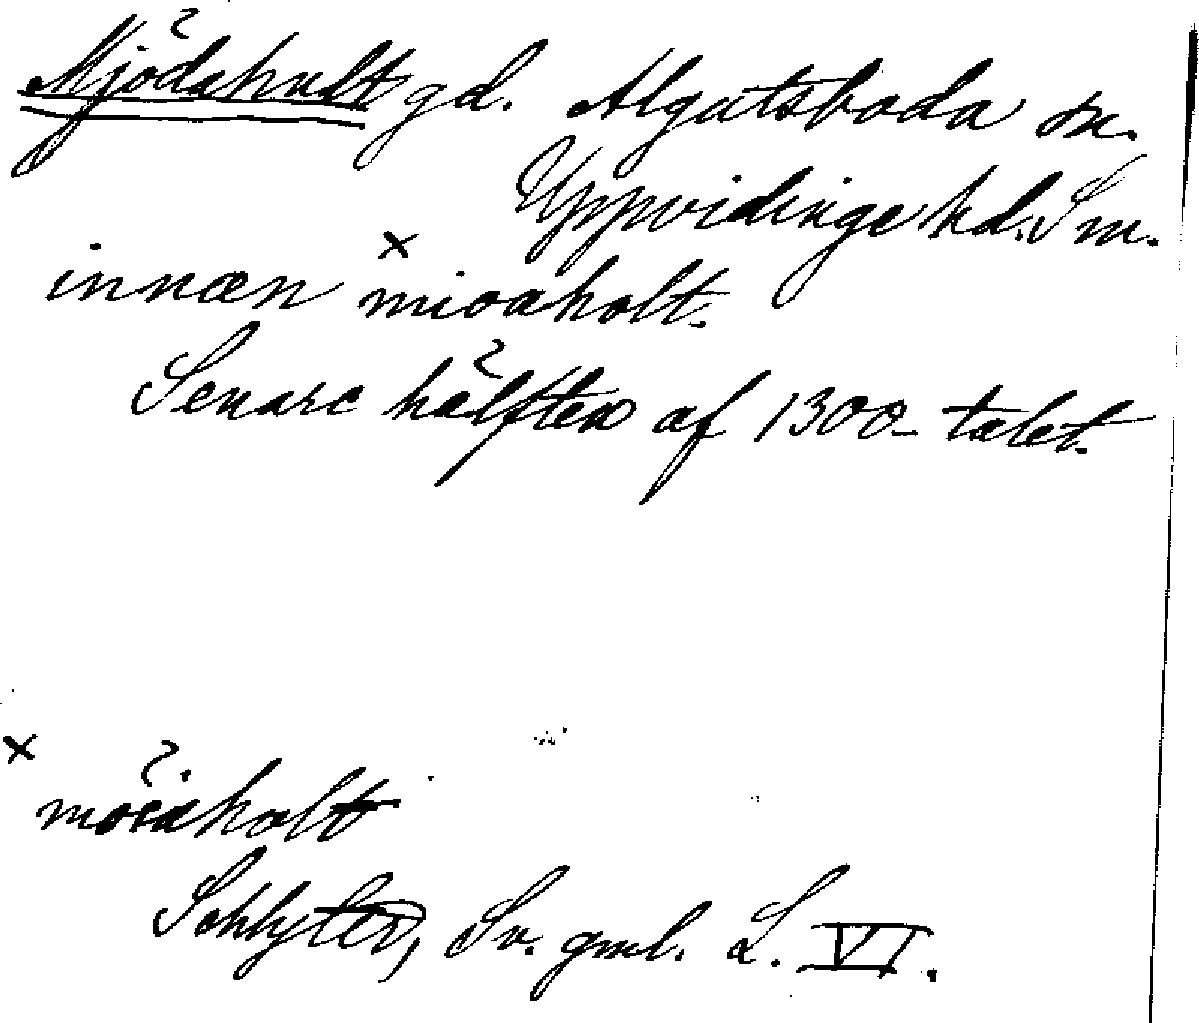 Mjödahult gd. Algutsboda sn.
Uppvidinge hd. Sm.
innæn × mioaholt.
Senare hälften af 1300-talet.
× möiaholt
Schlyter, Sv. gml. L. VI.